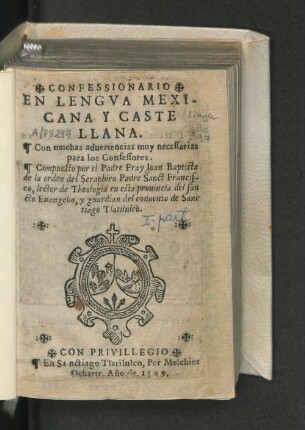 ✠ CONFESSIONARIO ✠
EN LENGVA MEXI-
CANA Y CASTE
LLANA.
A/18294
¶ Con muchas aduertencias muy necessarias
para los Confessores.
¶ Compuesto por el Padre Fray Ioan Baptista
de la orden del Seraphico Padre Sanct Francis-
co, lector de Theologia en esta prouincia del san
cto Euangelio, y guardian del conuento de Sanc
tiago Tlatilulco.
I. parte
✠ CON PRIVILLEGIO ✠
¶ En Sanctiago Tlatilulco, Por Melchior
Ocharte. Año de. 1599.